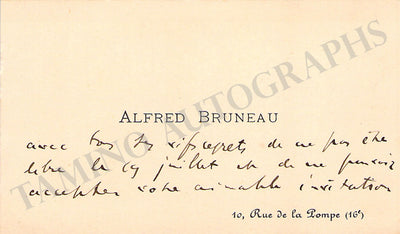 ALFRED BRUNEAU
avec tous ses vifs regrets de ne pas être
libre le 19 juillet et de ne pouvoir
accepter votre aimable invitation
10, Rue de la Pompe (16ᵉ)
TAMINO AUTOGRAPHS